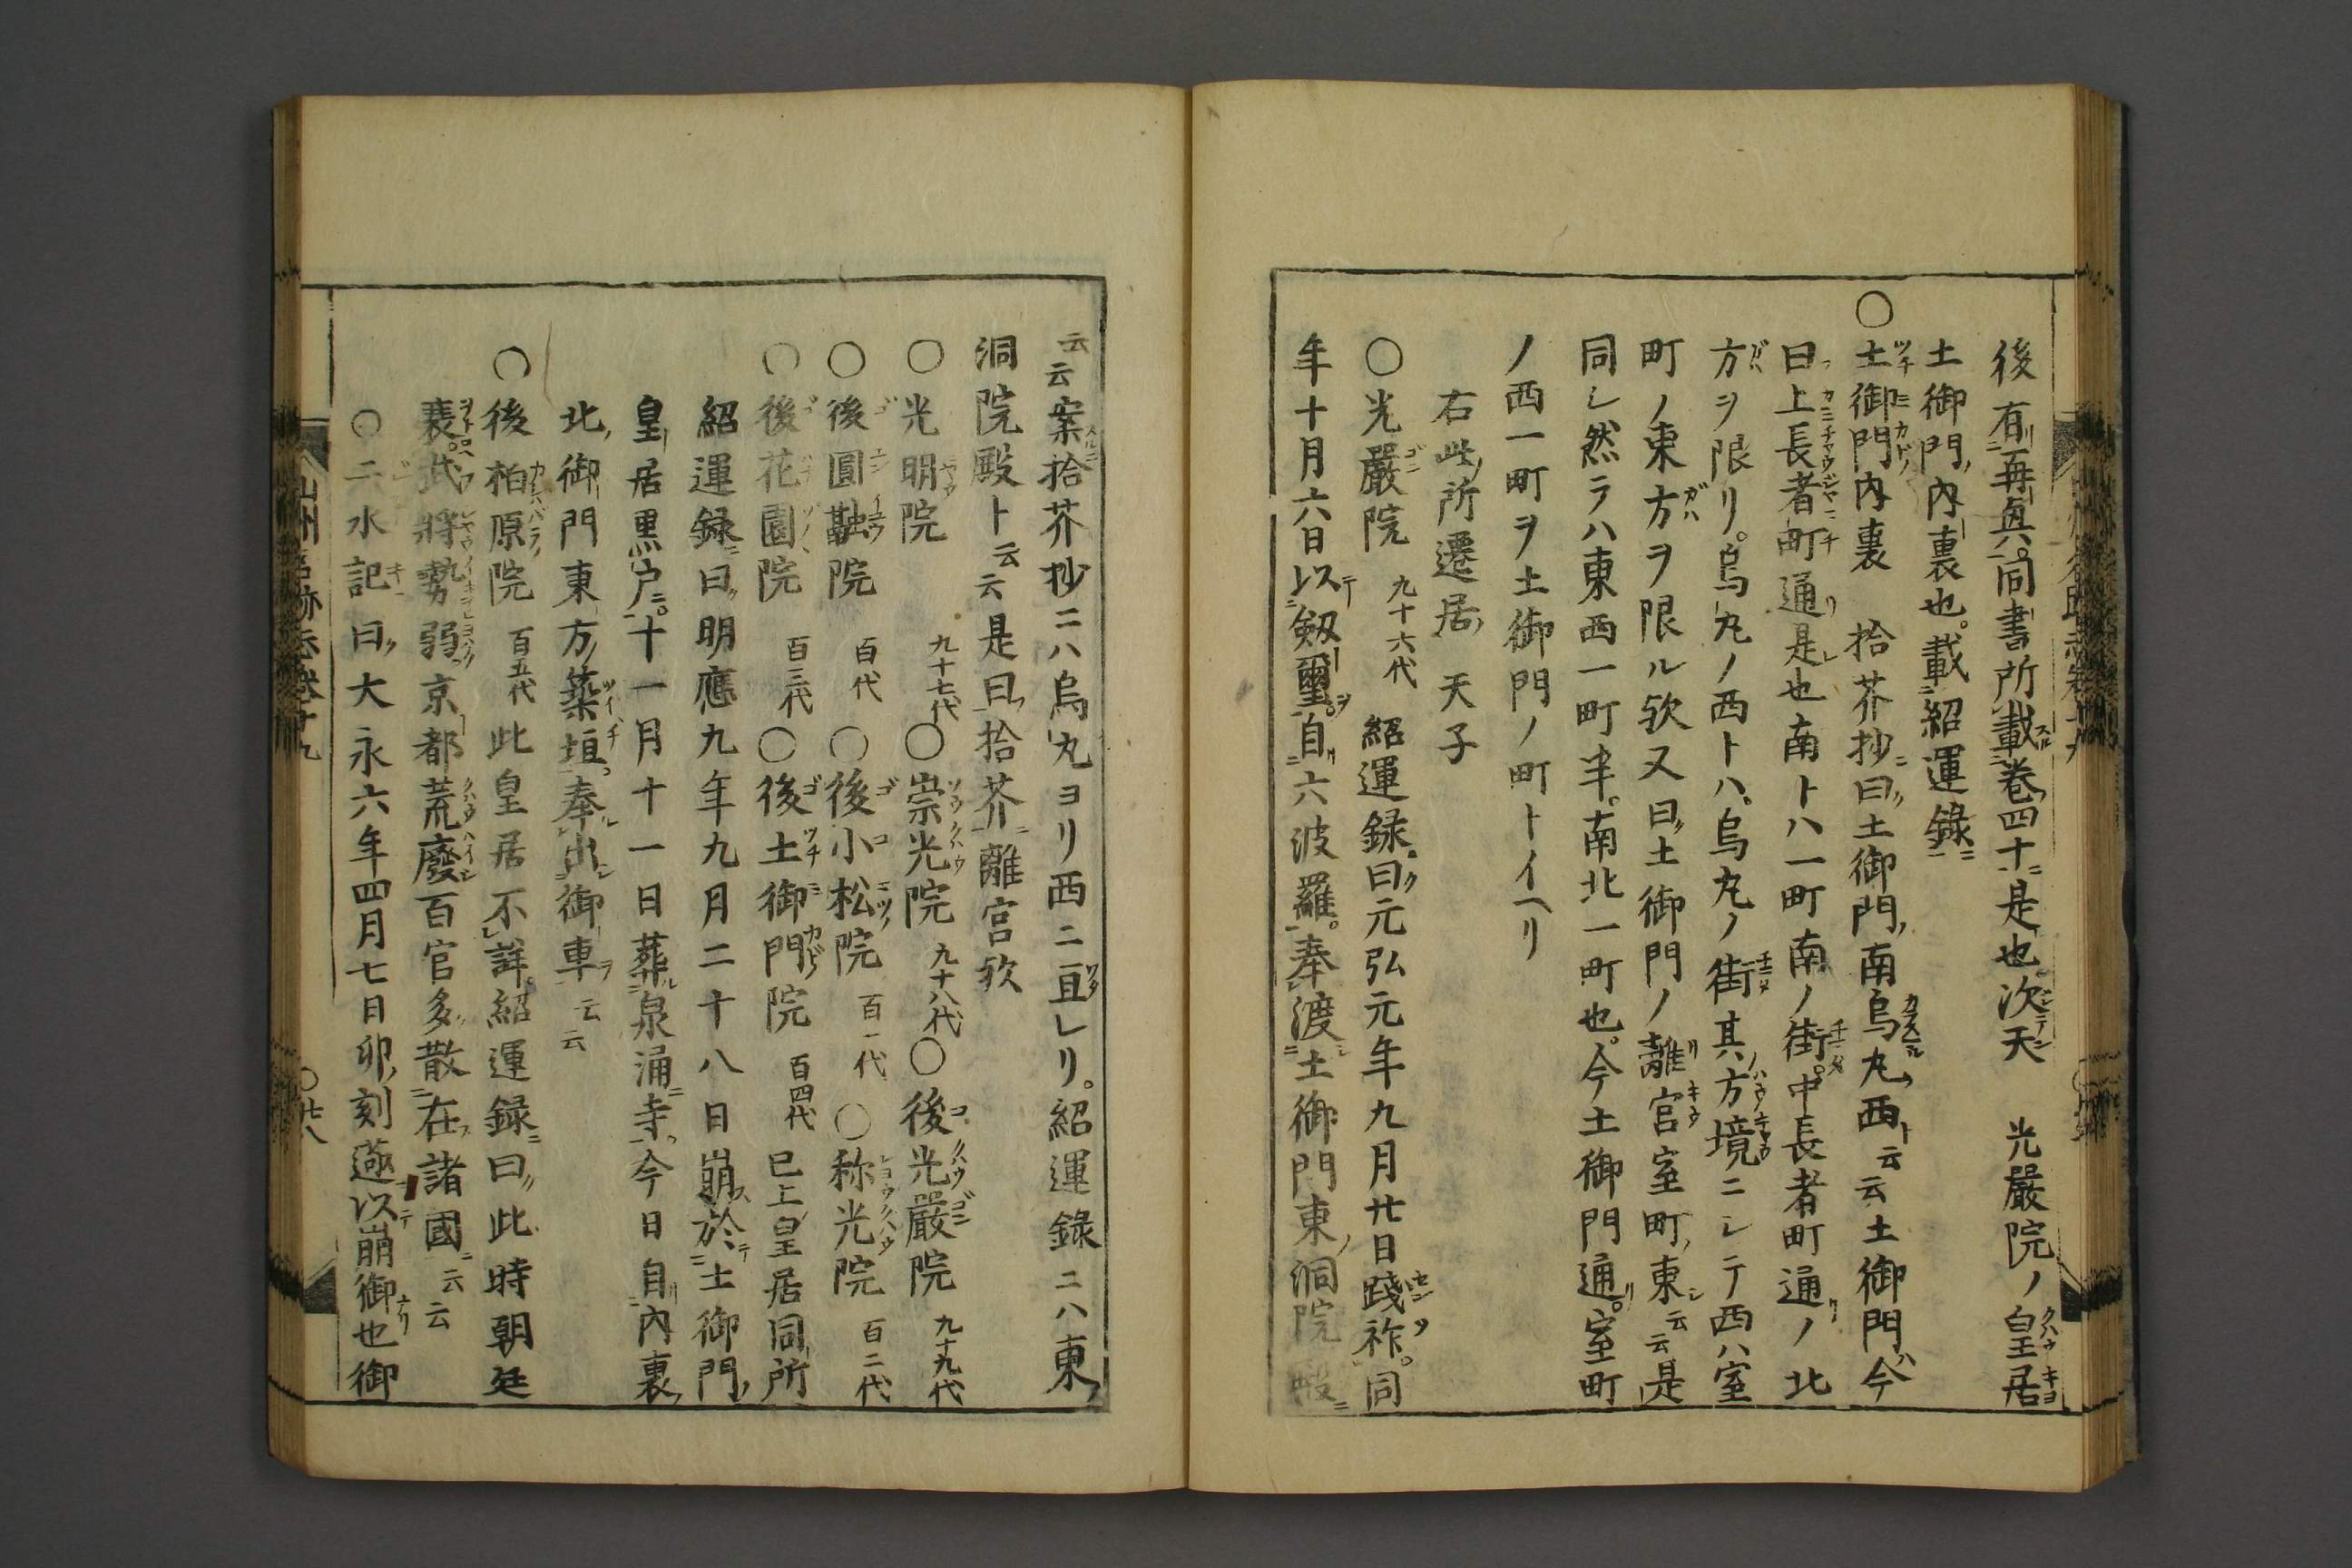 後有再興。同書所載巻四十ニ是也。次天　光嚴院ノ皇居
土御門ノ内裏也。載紹運錄ニ
〇土御門ノ内裏　拾芥抄ニ曰ク土御門ノ南烏丸ノ西ト云云土御門ハ今
曰フ上長者町通リ是レ也南トハ一町南ノ街。中長者町通リノ北
方ヲ限リ。烏丸ノ西トハ。烏丸ノ街其ノ方境ニシテ西ハ室
町ノ東方ヲ限ル欤又曰土御門ノ離宮室町ノ東シ云云是
同シ然ラハ東西一町半。南北一町也。今土御門通リ。室町
ノ西一町ヲ土御門ノ町トイヘリ
右此ノ所遷居ノ天子
〇光嚴院　九十六代　紹運録ニ曰ク元弘元年九月廿日踐祚ヲ。同
年十月六日以テ劔璽ヲ。自リ六波羅。奉渡シ土御門東ノ洞院殿ニ
云云案スルニ拾芥抄ニハ烏丸ヨリ西ニ亘レリ。紹運錄ニハ東ノ
洞院殿ト云云是曰拾芥ニ離宮欤
〇光明院　九十七代〇崇光院　九十八代〇後光嚴院　九十九代
〇後圓融院　百代　〇後小松院　百一代　〇称光院　百二代
〇後花園院　百三代　〇後土御門院　百四代　已上皇居同所
紹運録ニ曰明應九年九月二十八日崩ス於テ土御門ノ
皇居黒戸ニ。十一月十一日葬ル泉涌寺ニ。今日自リ内裏ノ
北ノ御門東ノ方ノ築垣。奉ル出シ御車ヲ云云
〇後柏原院　百五代　此皇居不詳。紹運録ニ曰此時朝廷
衰ヘ。武將勢弱ク京都荒廢シ百官多ク散在ス諸國ニ云云
〇二水記ニ曰ク大永六年四月七日卯ノ刻遂以テ崩御也御
山州名跡志巻十九
〇廿八